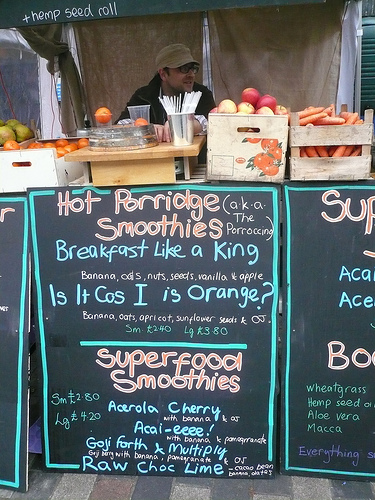 +hemp seed roll
Hot Porridge (a.k.a.
Smoothies The
Porroccino)
Breakfast Like a King
Banana, oats, nuts, seeds, vanilla & apple
Is It Cos I is Orange?
Banana, oats, apricot, sunflower seeds & OJ.
Sm £2.40 Lg £3.80
Superfood
Smoothies
Sm £2.80
Lg £4.20
Acerola Cherry
with banana & OJ
Acai-eeee!
with banana & pomegranate
Goji forth & Multiply
Goji berry with banana, pomegranate & OJ
Raw Choc Lime - cacao bean
banana, oats
r
Sup
Acai
Ace
Boo
wheatgrass
Hemp seed oi
Aloe vera
Macca
Everything s